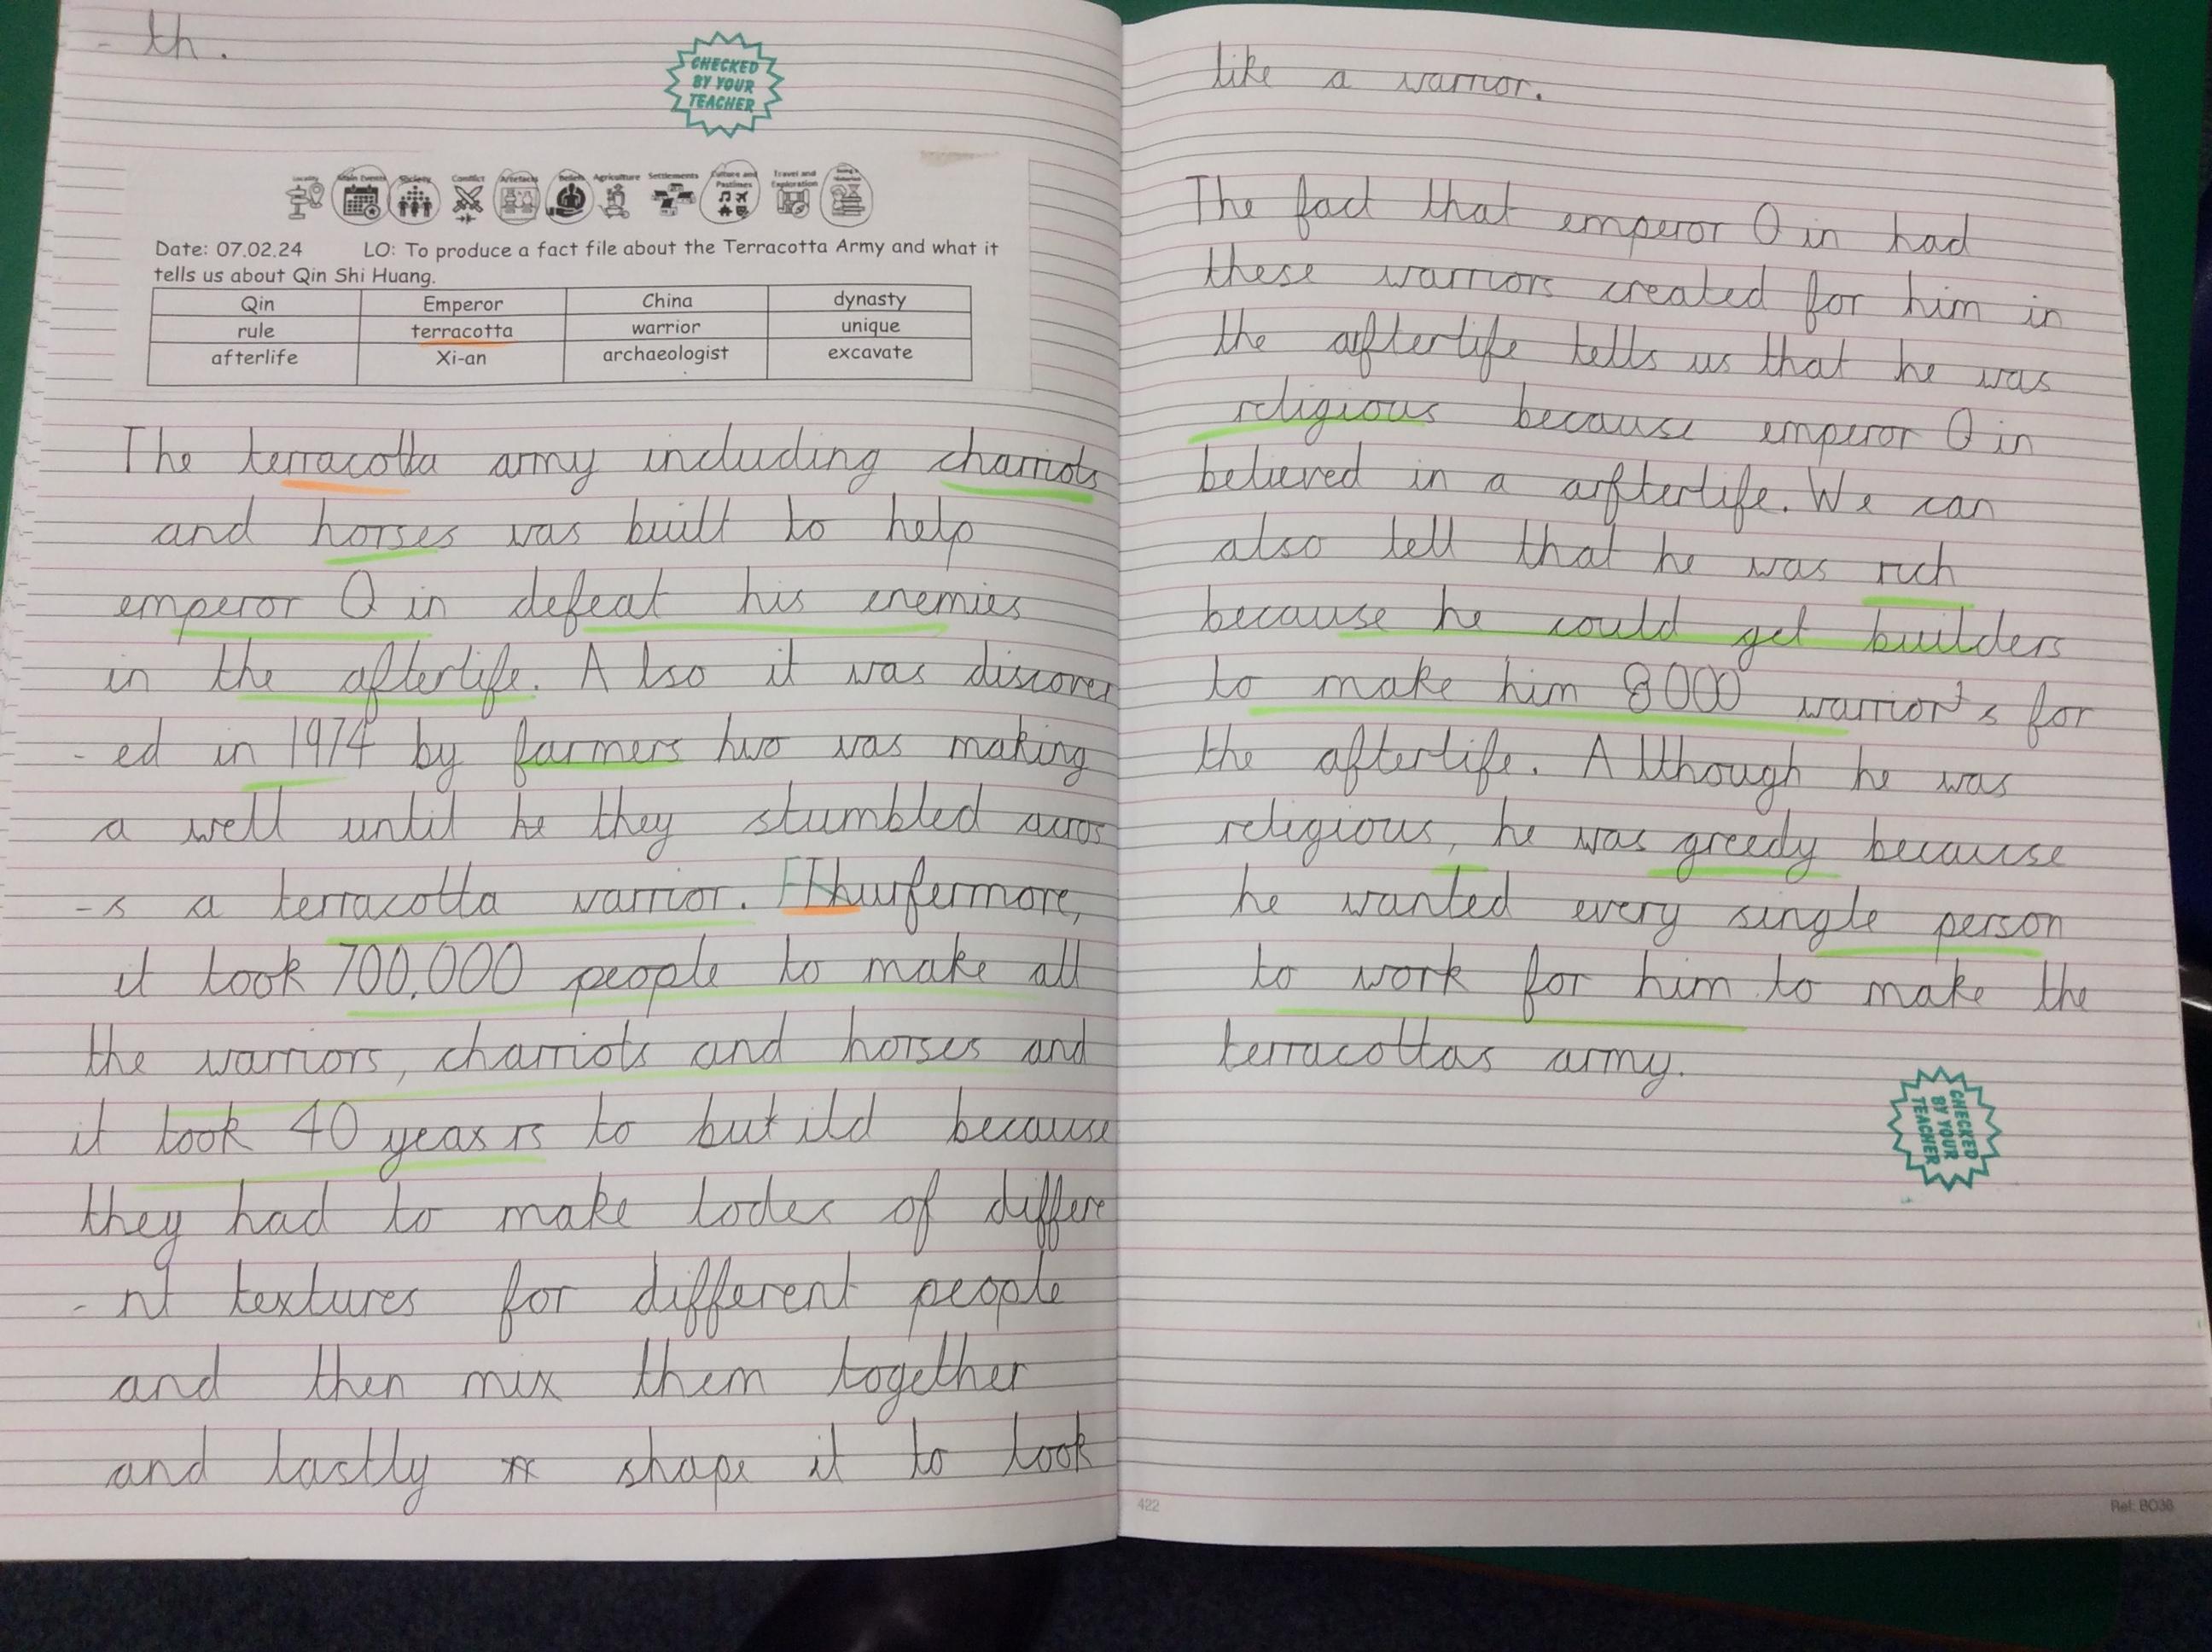 - th.
CHECKED
BY YOUR
TEACHER
Locality Main Events Society Conflict Artefacts Beliefs Agriculture Settlements Culture and Pastimes Travel and Exploration
Date: 07.02.24 LO: To produce a fact file about the Terracotta Army and what it
tells us about Qin Shi Huang.
Qin Emperor China dynasty
rule terracotta warrior unique
afterlife Xi-an archaeologist excavate
The terracotta army including charriots
and horses was built to help
emperor Qin defeat his enemies
in the afterlife. Also it was discover
- ed in 1974 by farmers two was making
a well until he they stumbled acros
- s a terracotta warrior. Thurfermore,
it took 700,000 people to make all
the warriors, charriots and horses and
it took 40 years to build because
they had to make lodes of differe
- nt textures for different people
and then mix them together
and lastly shape it to look
like a warrior.
The fact that emperor Qin had
these warriors created for him in
the afterlife tells us that he was
religious because emperor Qin
believed in a arfterlife. We can
also tell that he was rich
because he could get builders
to make him 8000 warrior's for
the afterlife. Although he was
religious, he was greedy because
he wanted every single person
to work for him to make the
terracottas army.
CHECKED
BY YOUR
TEACHER
422
Ref: BO38